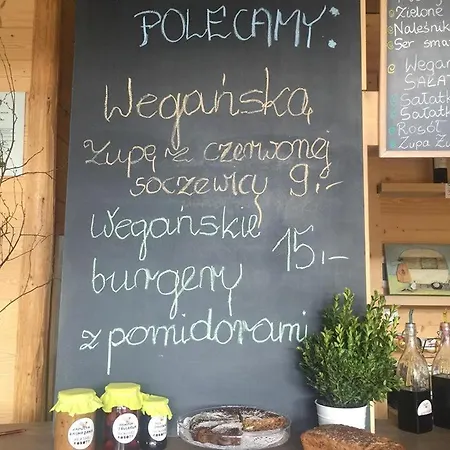 POLECAMY:
Wegańską
Zupę z czerwonej
soczewicy 9,-
Wegańskie
burgery 15,-
z pomidorami
Zielone
Naleśnik
Ser sma
Wegań
SAŁAT
Sałatk
Sałatk
Rosół
Zupa Żu